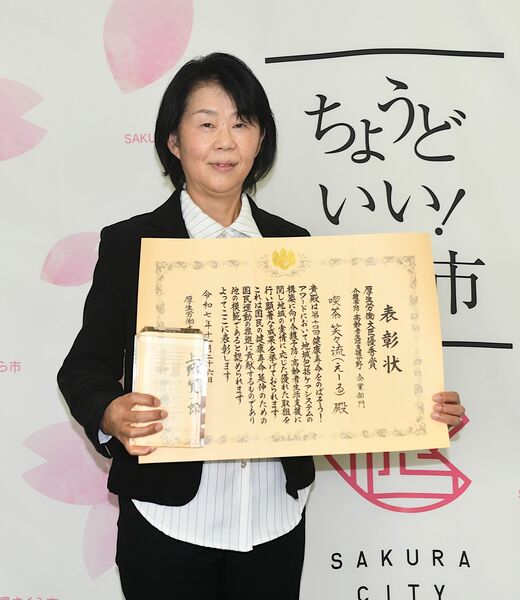 SAKURA
ちょうど
いい!
市
表彰状
厚生労働大臣優秀賞
介護予防・高齢者生活支援分野 企業部門
喫茶 笑々流(えーる) 殿
貴殿は第十回健康寿命をのばそう!
アワードにおいて地域包括ケアシステムの
構築に向け介護予防・高齢者生活支援に
関し地域の実情に応じた優れた取組を
行い顕著な成果を挙げておられます
これは国民の健康寿命延伸のための
国民運動の推進に貢献するものであり
他の模範であると認められます
よってここに表彰します
令和
厚生労働
SAKURA
CITY